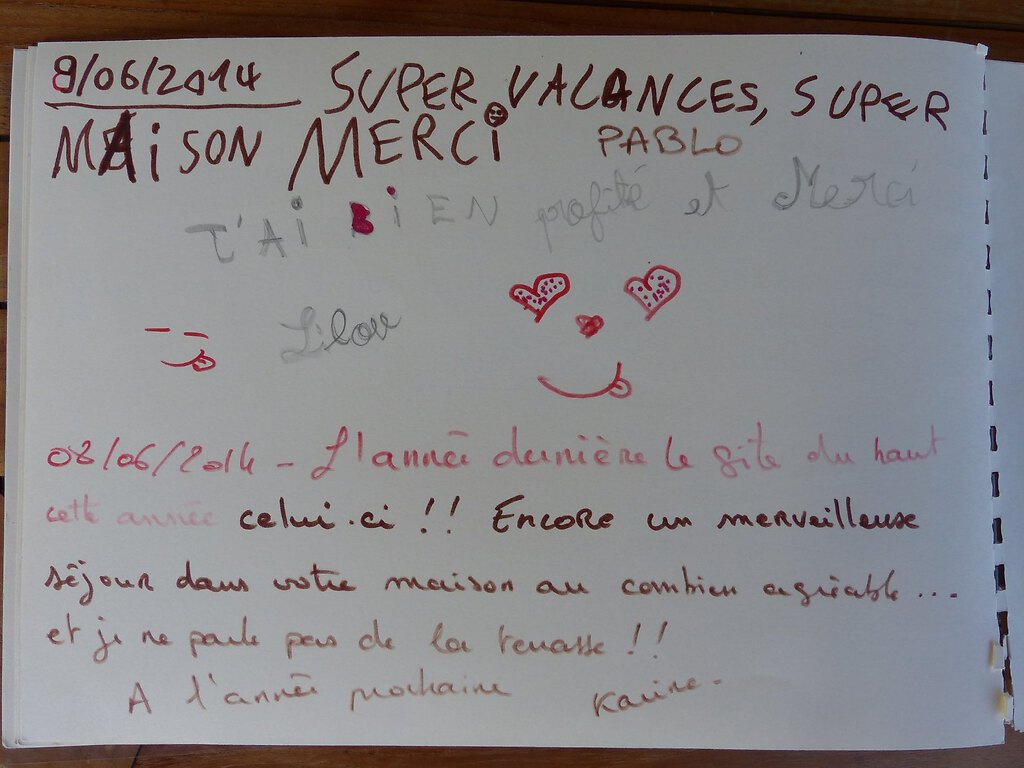 8/06/2014 SUPER VACANCES, SUPER
MAiSON MERCi PABLO
J'Ai BiEN profité et Merci
Lilou
08/06/2014 - L'année dernière le gîte du haut
cette année celui.ci !! Encore un merveilleuse
séjour dans votre maison au combien agréable ...
et je ne parle pas de la terrasse !!
A l'année prochaine Karine.